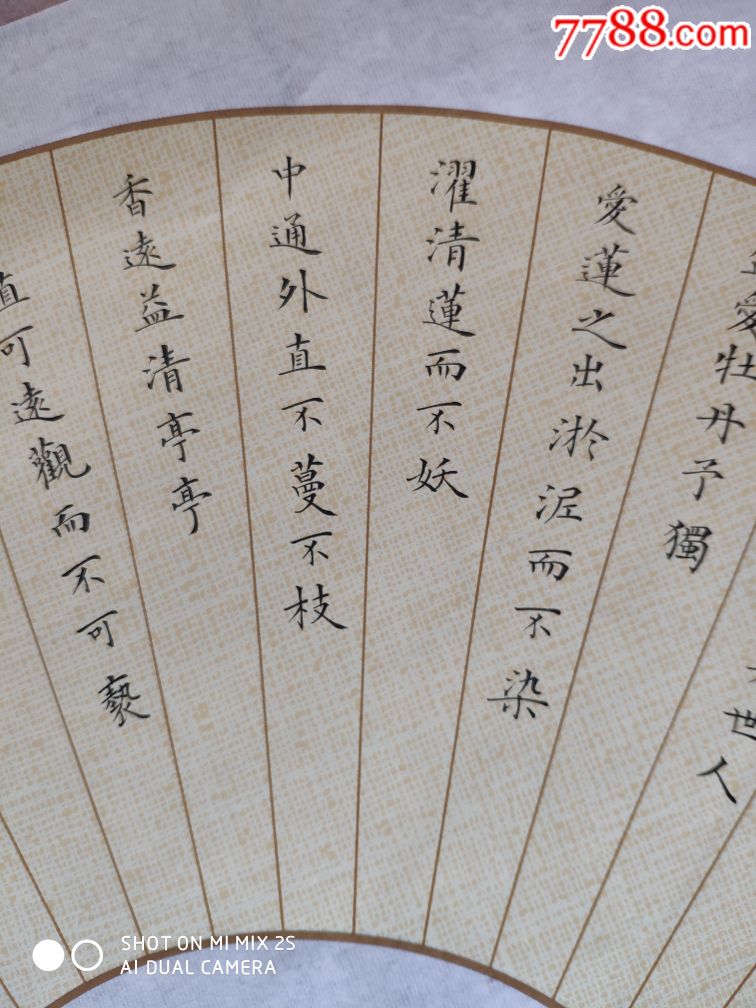 7788.com
世人
愛牡丹予獨
愛蓮之出淤泥而不染
濯清蓮而不妖
中通外直不蔓不枝
香遠益清亭亭
可遠觀而不可褻
SHOT ON MI MIX 2S
AI DUAL CAMERA